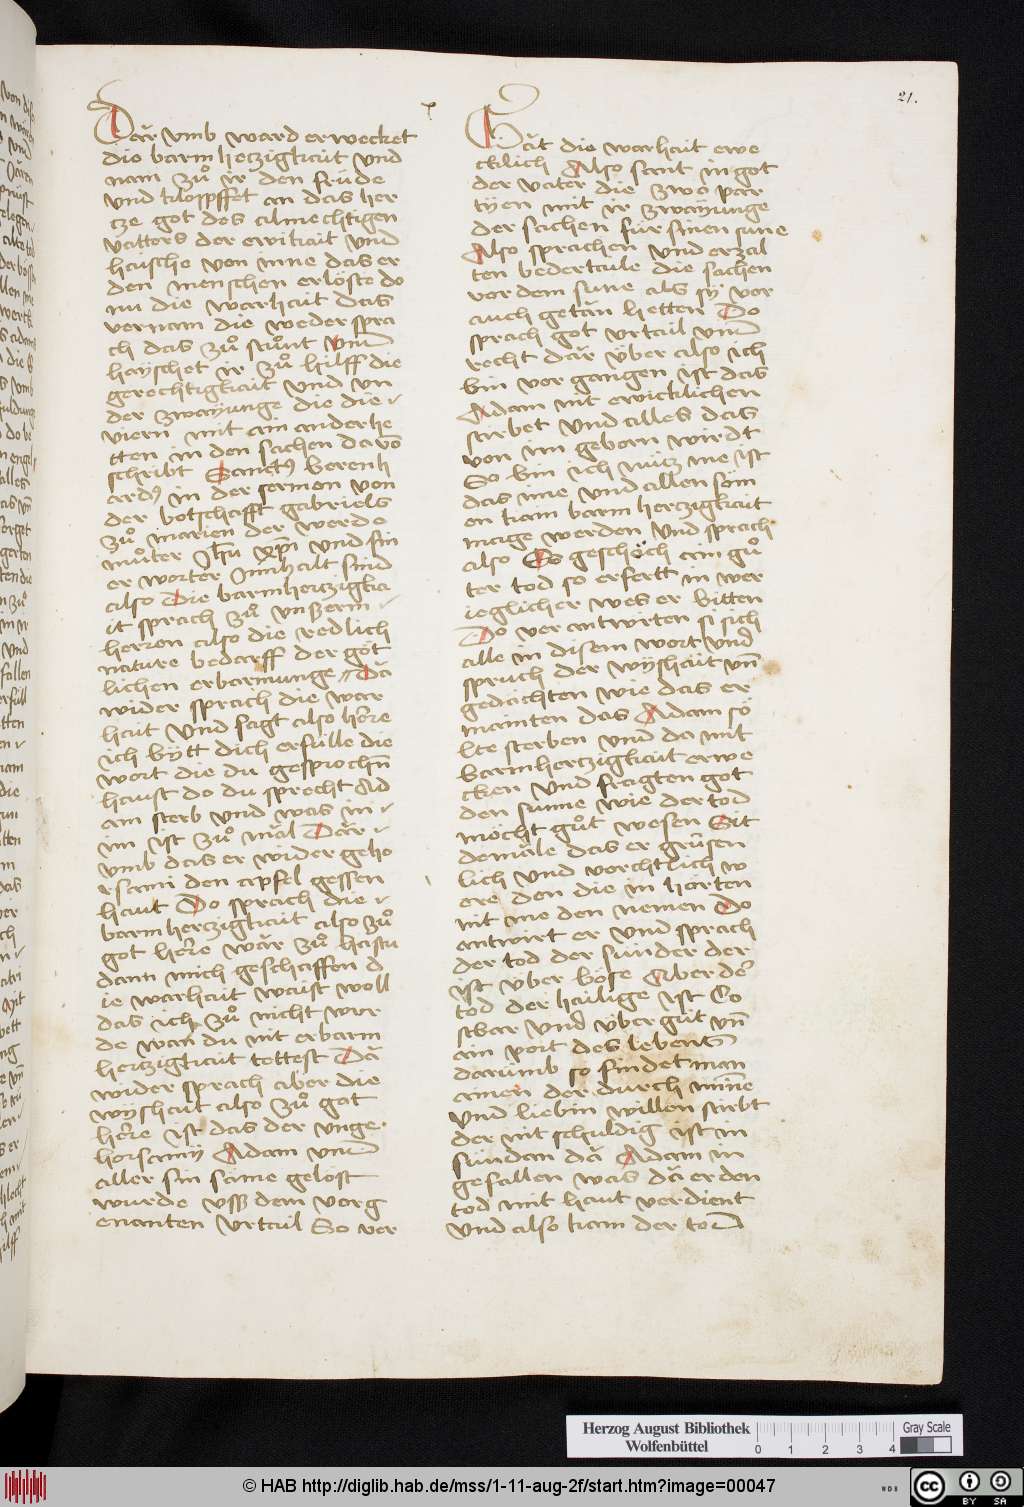 21.
Dar vmb ward erwecket
die barmhetzigkait vnd
nam zuͦ ir den fride
vnd klopffet an das her
cze got des almechtigen
vatters der ewikait vnd
haische von inne das er
den menschen erlöste do
nu die warhait das
vernam die weder spra
ch das zuͦ stuͦnt vnd
hayschet ir zuͦ hilff die
gerechtigkait vnd vn
der zwayunge die die
viern mit ain ander he
tten in den sachen da võ
schribt Sanctꝰ berenh
ardꝰ in der sermon von
der botschafft gabriels
zuͦ marien der werde
muͦter Jh̃u xp̃i vnd sin
er worter Jnnhalt sind
also Die barmhertzigka
it sprach zuͦ vnßerm
herren also die redlich
nature bedarff der göt
lichen erbarmunge Da
wider sprach die war
hait Vnd sagt also herre
ich bytt dich erfülle die
wort die du gesprochñ
haust do du sprecht Ad
am sterb vnd was in
im ist zuͦ mäl Där
vmb das er wider geho
rsami den apfel gessen
haut Do sprach die
barmhertzigkait also zuͦ
got herre wär zuͦ hastu
dann mich geschaffen d
ie warhait waist woll
das ich zuͦ nicht wur
de wan du nit erbarm
hertzigkait tettest Dä
wider sprach aber die
wyshait also zuͦ gat
herre ist das der vnge
horsamy Adam vnd
aller sin säme gelöst
wurde vss dem vorg
enanten vrtail So ver
Hät die warhait ewe
cklich Also sant in got
der vater die zwo par
tyen mit ir zwayunge
der sachen für sinen sune
Also sprachen vnd erzal
ten bedertaile die sachen
vor dem sune als sy vor
auch getän hetten Do
sprach got vrtail vnd
recht där über also ich
bin vor gangen ist das
Adam nit ewicklichen
stirbet vnd alles das
von im geborn wirdt
So bin ich nütz me ist
das me vnd allen süm
en kain barmhertzigkait
mage werden vnd sprach
also Es geschöch ain guͦ
ter tod so erfertt in wer
ieglicher wes er bitten
Do ver antwrten si sich
alle in disem wort vnd
spruch der wyshait vñ
gedächten wie das er
mainten das Adam sö
lte sterben vnd da mit
barmhertzigkait erwe
cken vnd fragten got
den sunne wie der tod
möcht guͦt wesen Sit
demäle das er grüsen
lich vnd vorchtlich w
ere den die in hörten
nit me den nemen Do
antwirt er vnd sprach
der tod der sünder der
ist über böse Aber der
tod der hailige ist Co
stbar vnd über güt vñ
ain port des lebens
darumb so findet man
ainen der durch minne
vnd liebin willen stirbt
der nit schuldig ist in
sündan dä Adam in
gefallen was dä er den
tod mit haut verdient
vnd also kam der tod
Herzog August Bibliothek
Wolfenbüttel
0 1 2 3 4
Gray Scale
© HAB http://diglib.hab.de/mss/1-11-aug-2f/start.htm?image=00047
WDB
CC
BY SA